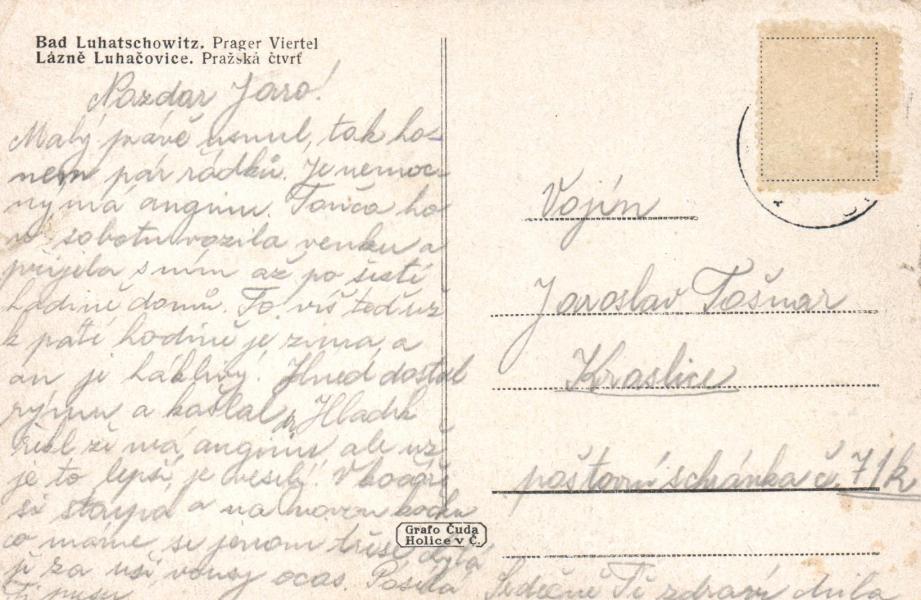 Bad Luhatschowitz. Prager Viertel
Lázně Luhačovice. Pražská čtvrť
Nazdar Jaro!
Malý právě usnul, tak ho-
nem pár řádků. Je nemoc-
ný má anginu. Tonča ho
v sobotu vozila venku a
přijela s ním až po šesté
hodině domů. To víš teď už
k páté hodině je zima a
on je háklivý. Hned dostal
rýmu a kašlal, Dr Hladík
řekl že má anginu ale už
je to lepší, je veselý. V kočáře
si stoupá a na novou kočku
co máme, se jenom třese,
ji za uši vousy ocas. Posílá
Ti pusu
Vojín
Jaroslav Tošnar
Kraslice
poštovní schánka č. 71k
Srdečně Tě zdraví
Grafo Čuda
Holice v Č.